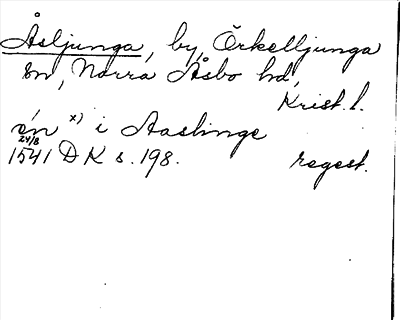 Åsljunga, by, Örkelljunga
sn, Norra Åsbo hd,
Krist. l.
én x) i Aaslinge
24/8
1541 DK s. 198. regest.